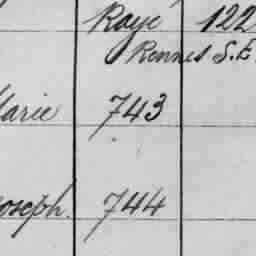 Raye 122
Rennes S.E
Marie 743
Joseph. 744